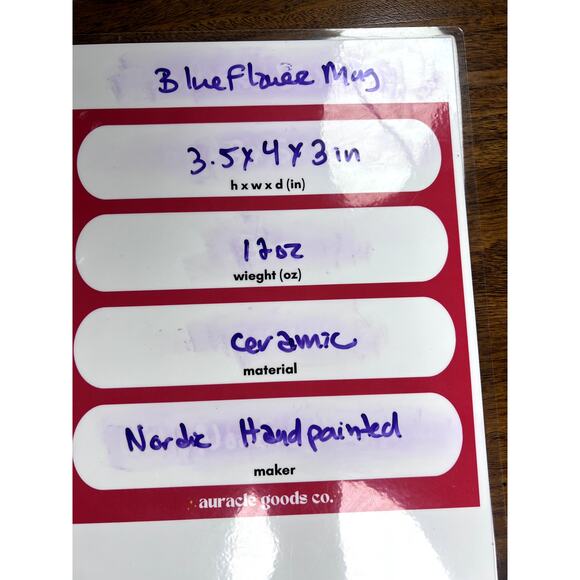 Blue Flower Mug
3.5 x 4 x 3 in
h x w x d (in)
12oz
wieght (oz)
ceramic
material
Nordic Handpainted
maker
auracle goods co.